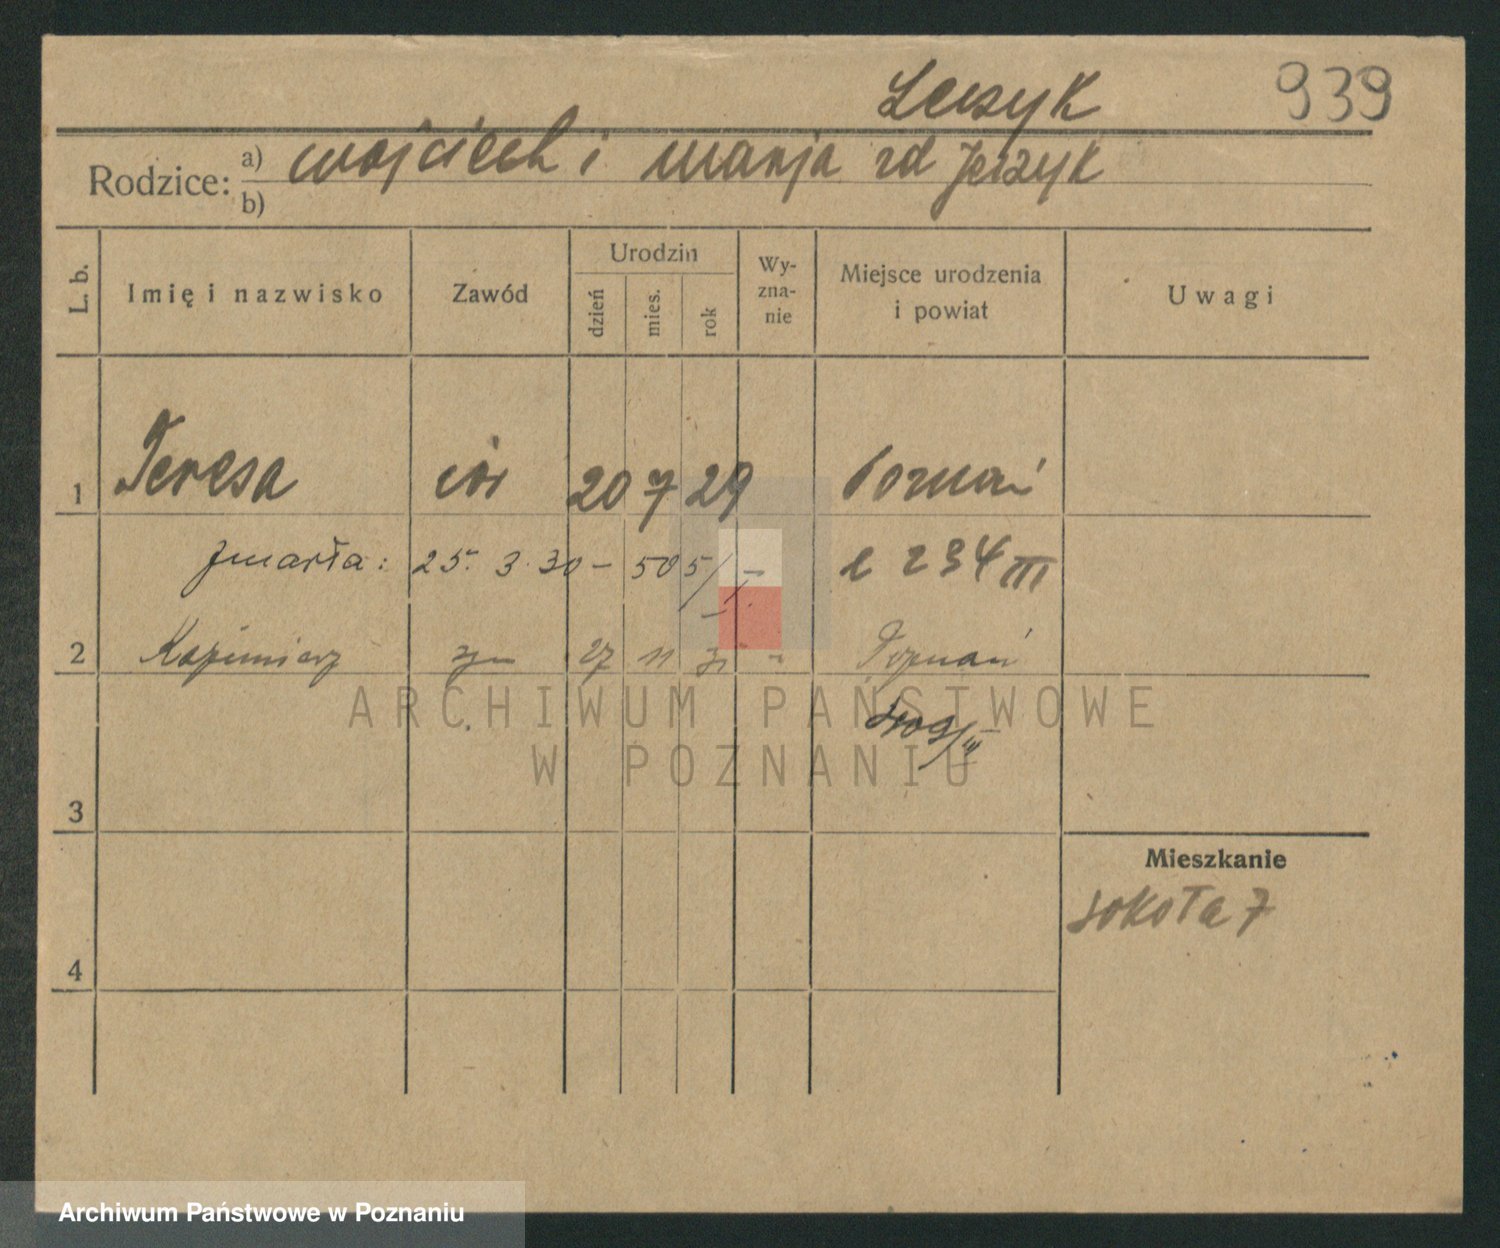 939
Rodzice: a) wojciech i marja zd Jerzyk
b)
L. b. Imię i nazwisko Zawód Urodzin dzień mies. rok Wy-zna-nie Miejsce urodzenia i powiat Uwagi
1 Teresa cór 20 7 29 Poznań
zmarła: 25. 3. 30 – 505/I – 234 III
2 Kazimierz syn 27 11 31 Poznań
ARCHIWUM PAŃSTWOWE
W POZNANIU
3
Mieszkanie
sokoła 7
4
Archiwum Państwowe w Poznaniu